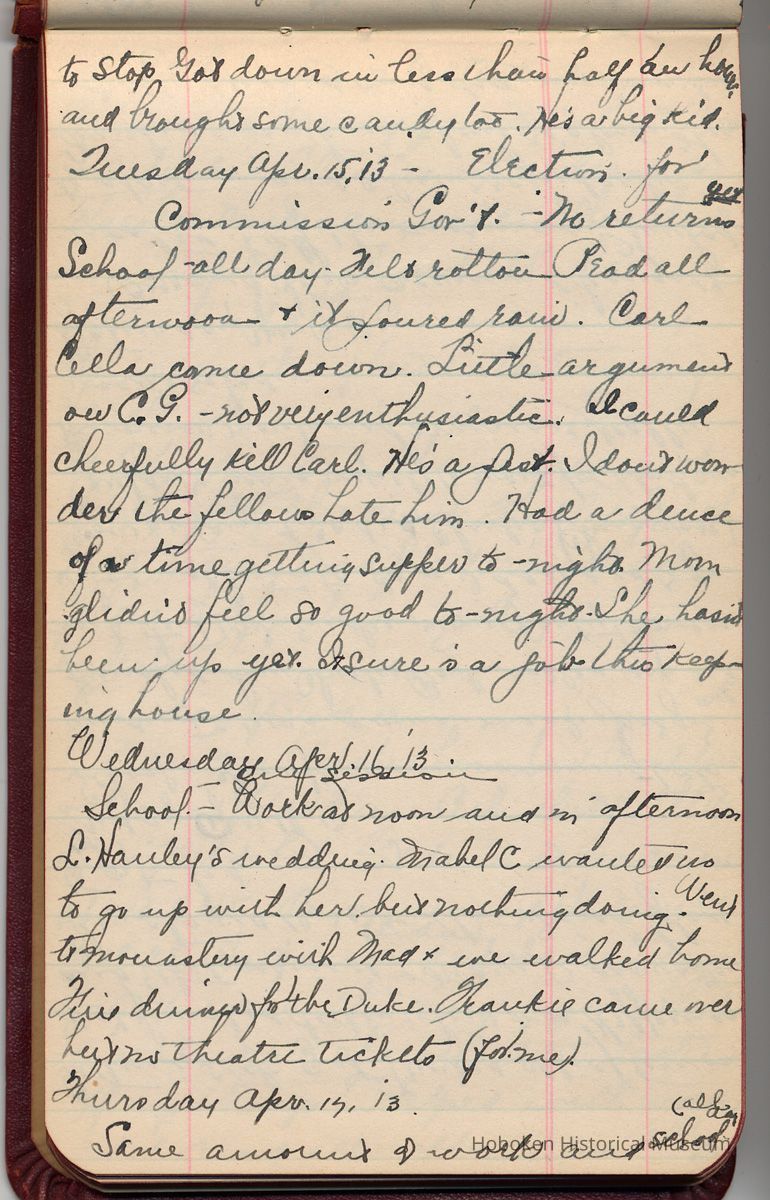 to stop. Got down in less than half an hour,
and brought some candy too. He's a big kid.
Tuesday Apr. 15, 13 - Election for
yet
Commission Gov't. - No returns
School - all day. Felt rotton. Read all
afternoon + it poured rain. Carl
Cella came down. Little argument
on C. G. - not very enthusiastic. I could
cheerfully kill Carl. He's a pest. I don't won-
der the fellows hate him. Had a deuce
of a time getting supper to-night. Mom
didn't feel so good to-night. She hasn't
been up yet. It sure is a job this keep-
ing house.
Wednesday Apr. 16, '13
One session
School. - Work at noon and in afternoon
L. Hanley's wedding. Mabel C wanted us
to go up with her but nothing doing. Went
to monastery with Mad + we walked home
Fine dinner for the Duke. Frankie came over
but no theatre tickets (for me).
Thursday Apr. 17, '13.
Same amount of work and school
Hoboken Historical Museum